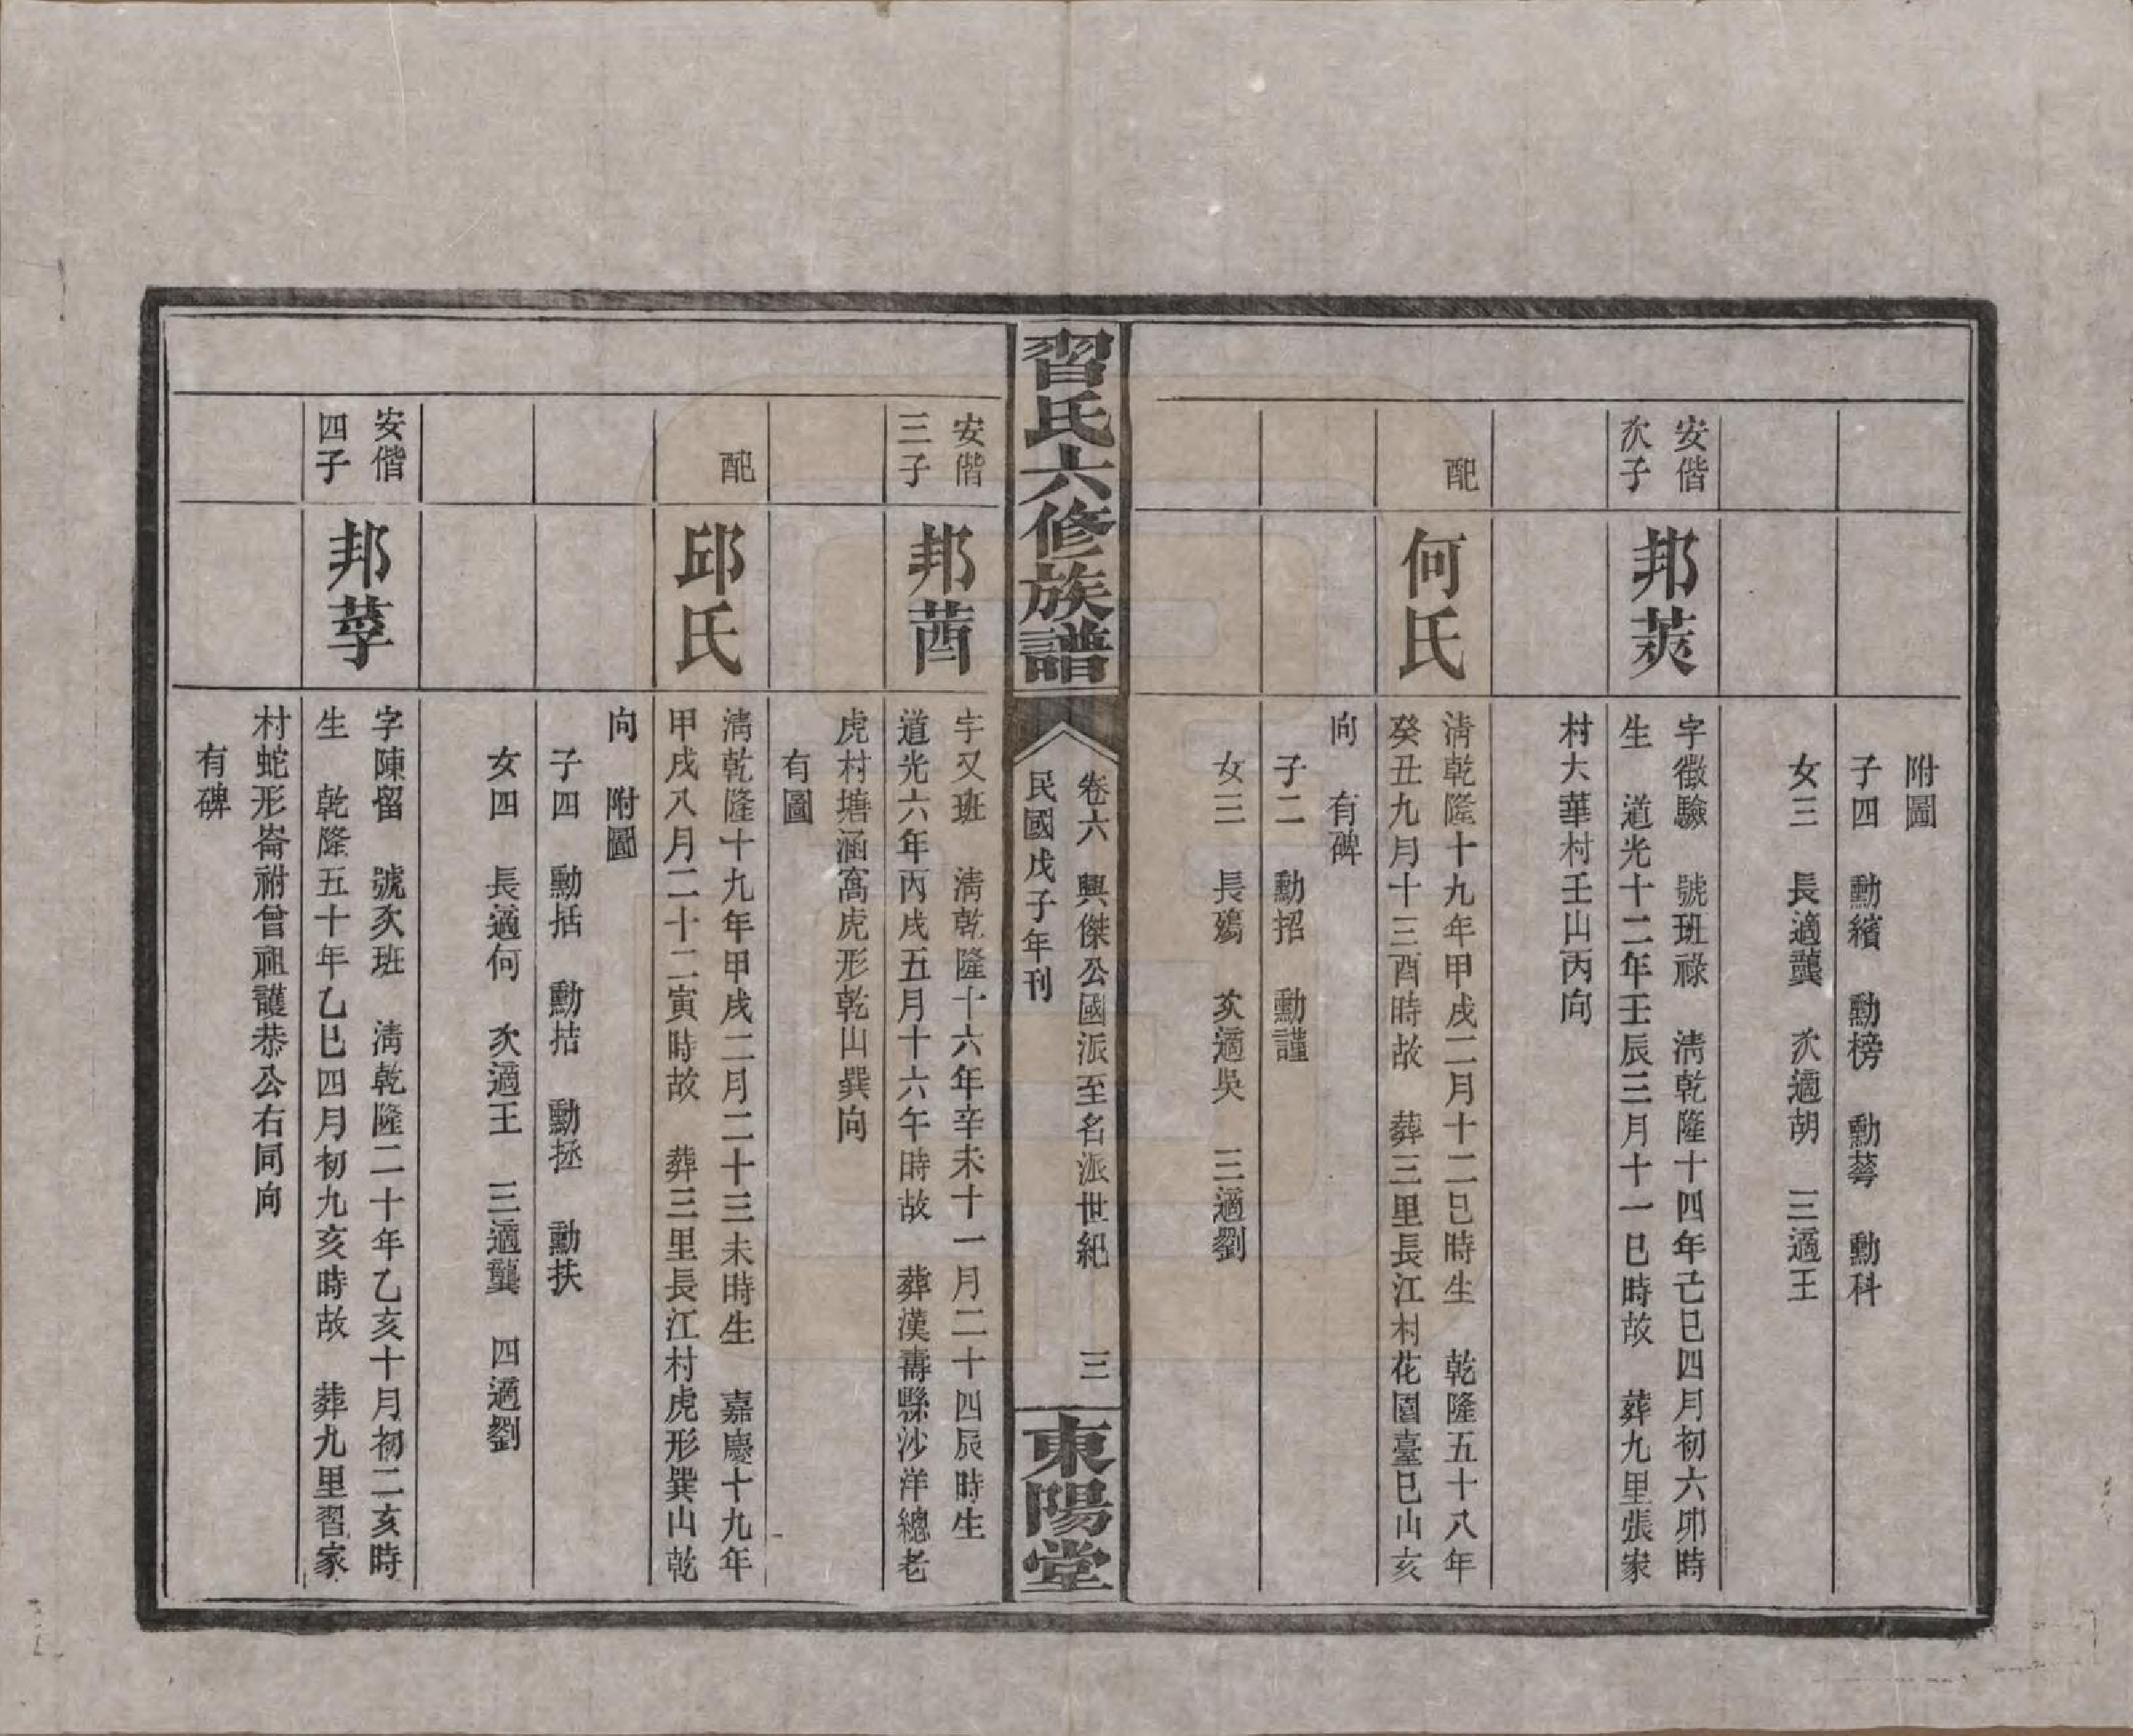 附圖
子四　勳繽　勳榜　勳蕚　勳科
女三　長適龔　次適胡　三適王
安偕
次子
邦莢
字徵驗　號班祿　淸乾隆十四年己巳四月初六卯時
生　道光十二年壬辰三月十一巳時故　葬九里張家
村大華村壬山丙向
配
何氏
淸乾隆十九年甲戌二月十二巳時生　乾隆五十八年
癸丑九月十三酉時故　葬三里長江村花園臺巳山亥
向　有碑
子二　勳招　勳謹
女三　長殤　次適吳　三適劉
習氏六修族譜
卷六　興傑公國派至名派世紀　三
民國戊子年刊
東陽堂
安偕
三子
邦莤
字又班　淸乾隆十六年辛未十一月二十四辰時生
道光六年丙戌五月十六午時故　葬漢壽縣沙洋總老
虎村塘涵窩虎形乾山巽向
有圖
配
邱氏
淸乾隆十九年甲戌二月二十三未時生　嘉慶十九年
甲戌八月二十二寅時故　葬三里長江村虎形巽山乾
向　附圖
子四　勳括　勳拮　勳拯　勳扶
女四　長適何　次適王　三適龔　四適劉
安偕
四子
邦莩
字陳留　號次班　淸乾隆二十年乙亥十月初二亥時
生　乾隆五十年乙巳四月初九亥時故　葬九里習家
村蛇形崙祔曾祖護恭公右同向
有碑